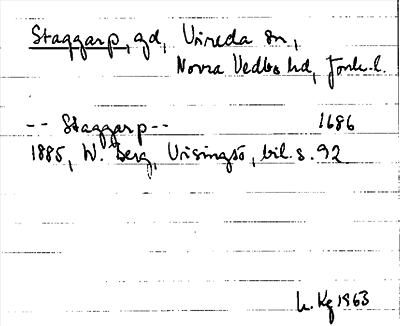 Staggarp, gd, Vireda sn,
Norra Vedbo hd, Jönk. l.
-- Staggarp -- 1686
1885, W. Berg, Visingsö, bil. s. 92
1963